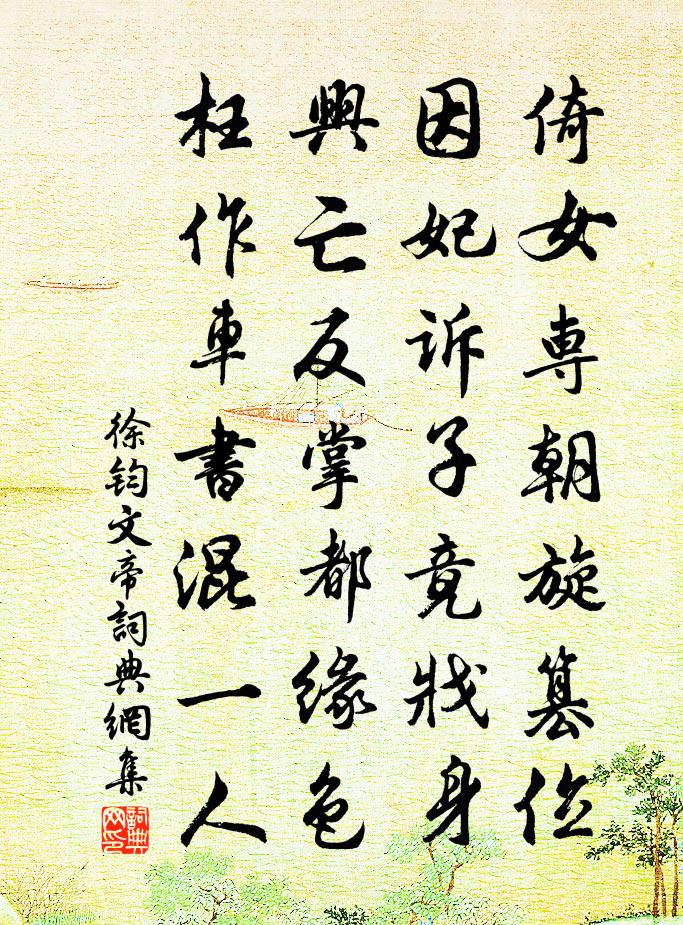 倚女専朝旋篡位
因妃訴子竟戕身
興亡反掌都緣色
枉作車書混一人
徐鈞文帝詞典網集
詞典网印